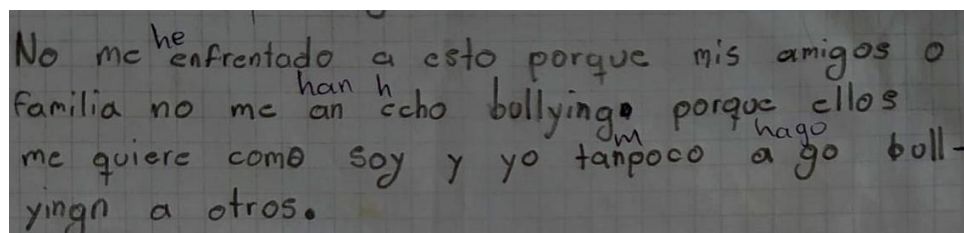 he
No me enfrentado a esto porque mis amigos o
han h
familia no me an echo bullying porque ellos
me quiere como soy y yo tanpoco a go bull-
m hago
yingn a otros.